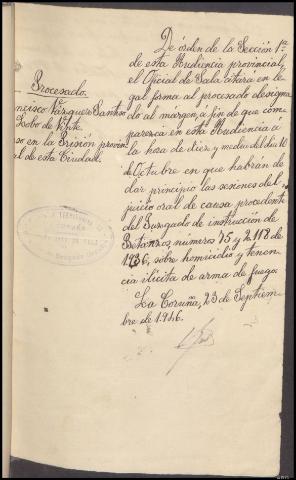 De órden de la Sección 1ª
de esta Audiencia provincial,
el Oficial de Sala citará en le-
gal forma al procesado designa-
do al márgen, á fin de que com-
parezca en esta Audiencia á
la hora de diez y media del dia 10
de Octubre en que habrán de
dar principio las sesiones del
juicio oral de causa procedente
del Juzgado de instrucción de
Betanzos, números 75 y 2118 de
1936, sobre homicidio y tenen-
cia ilícita de arma de fuego.
La Coruña, 23 de Septiem-
bre de 1946.
Procesado.
ncisco Vázquez Santos
Lobo de
so en la Prisión provin
al de esta Ciudad.
TERRITORIAL
CORUÑA